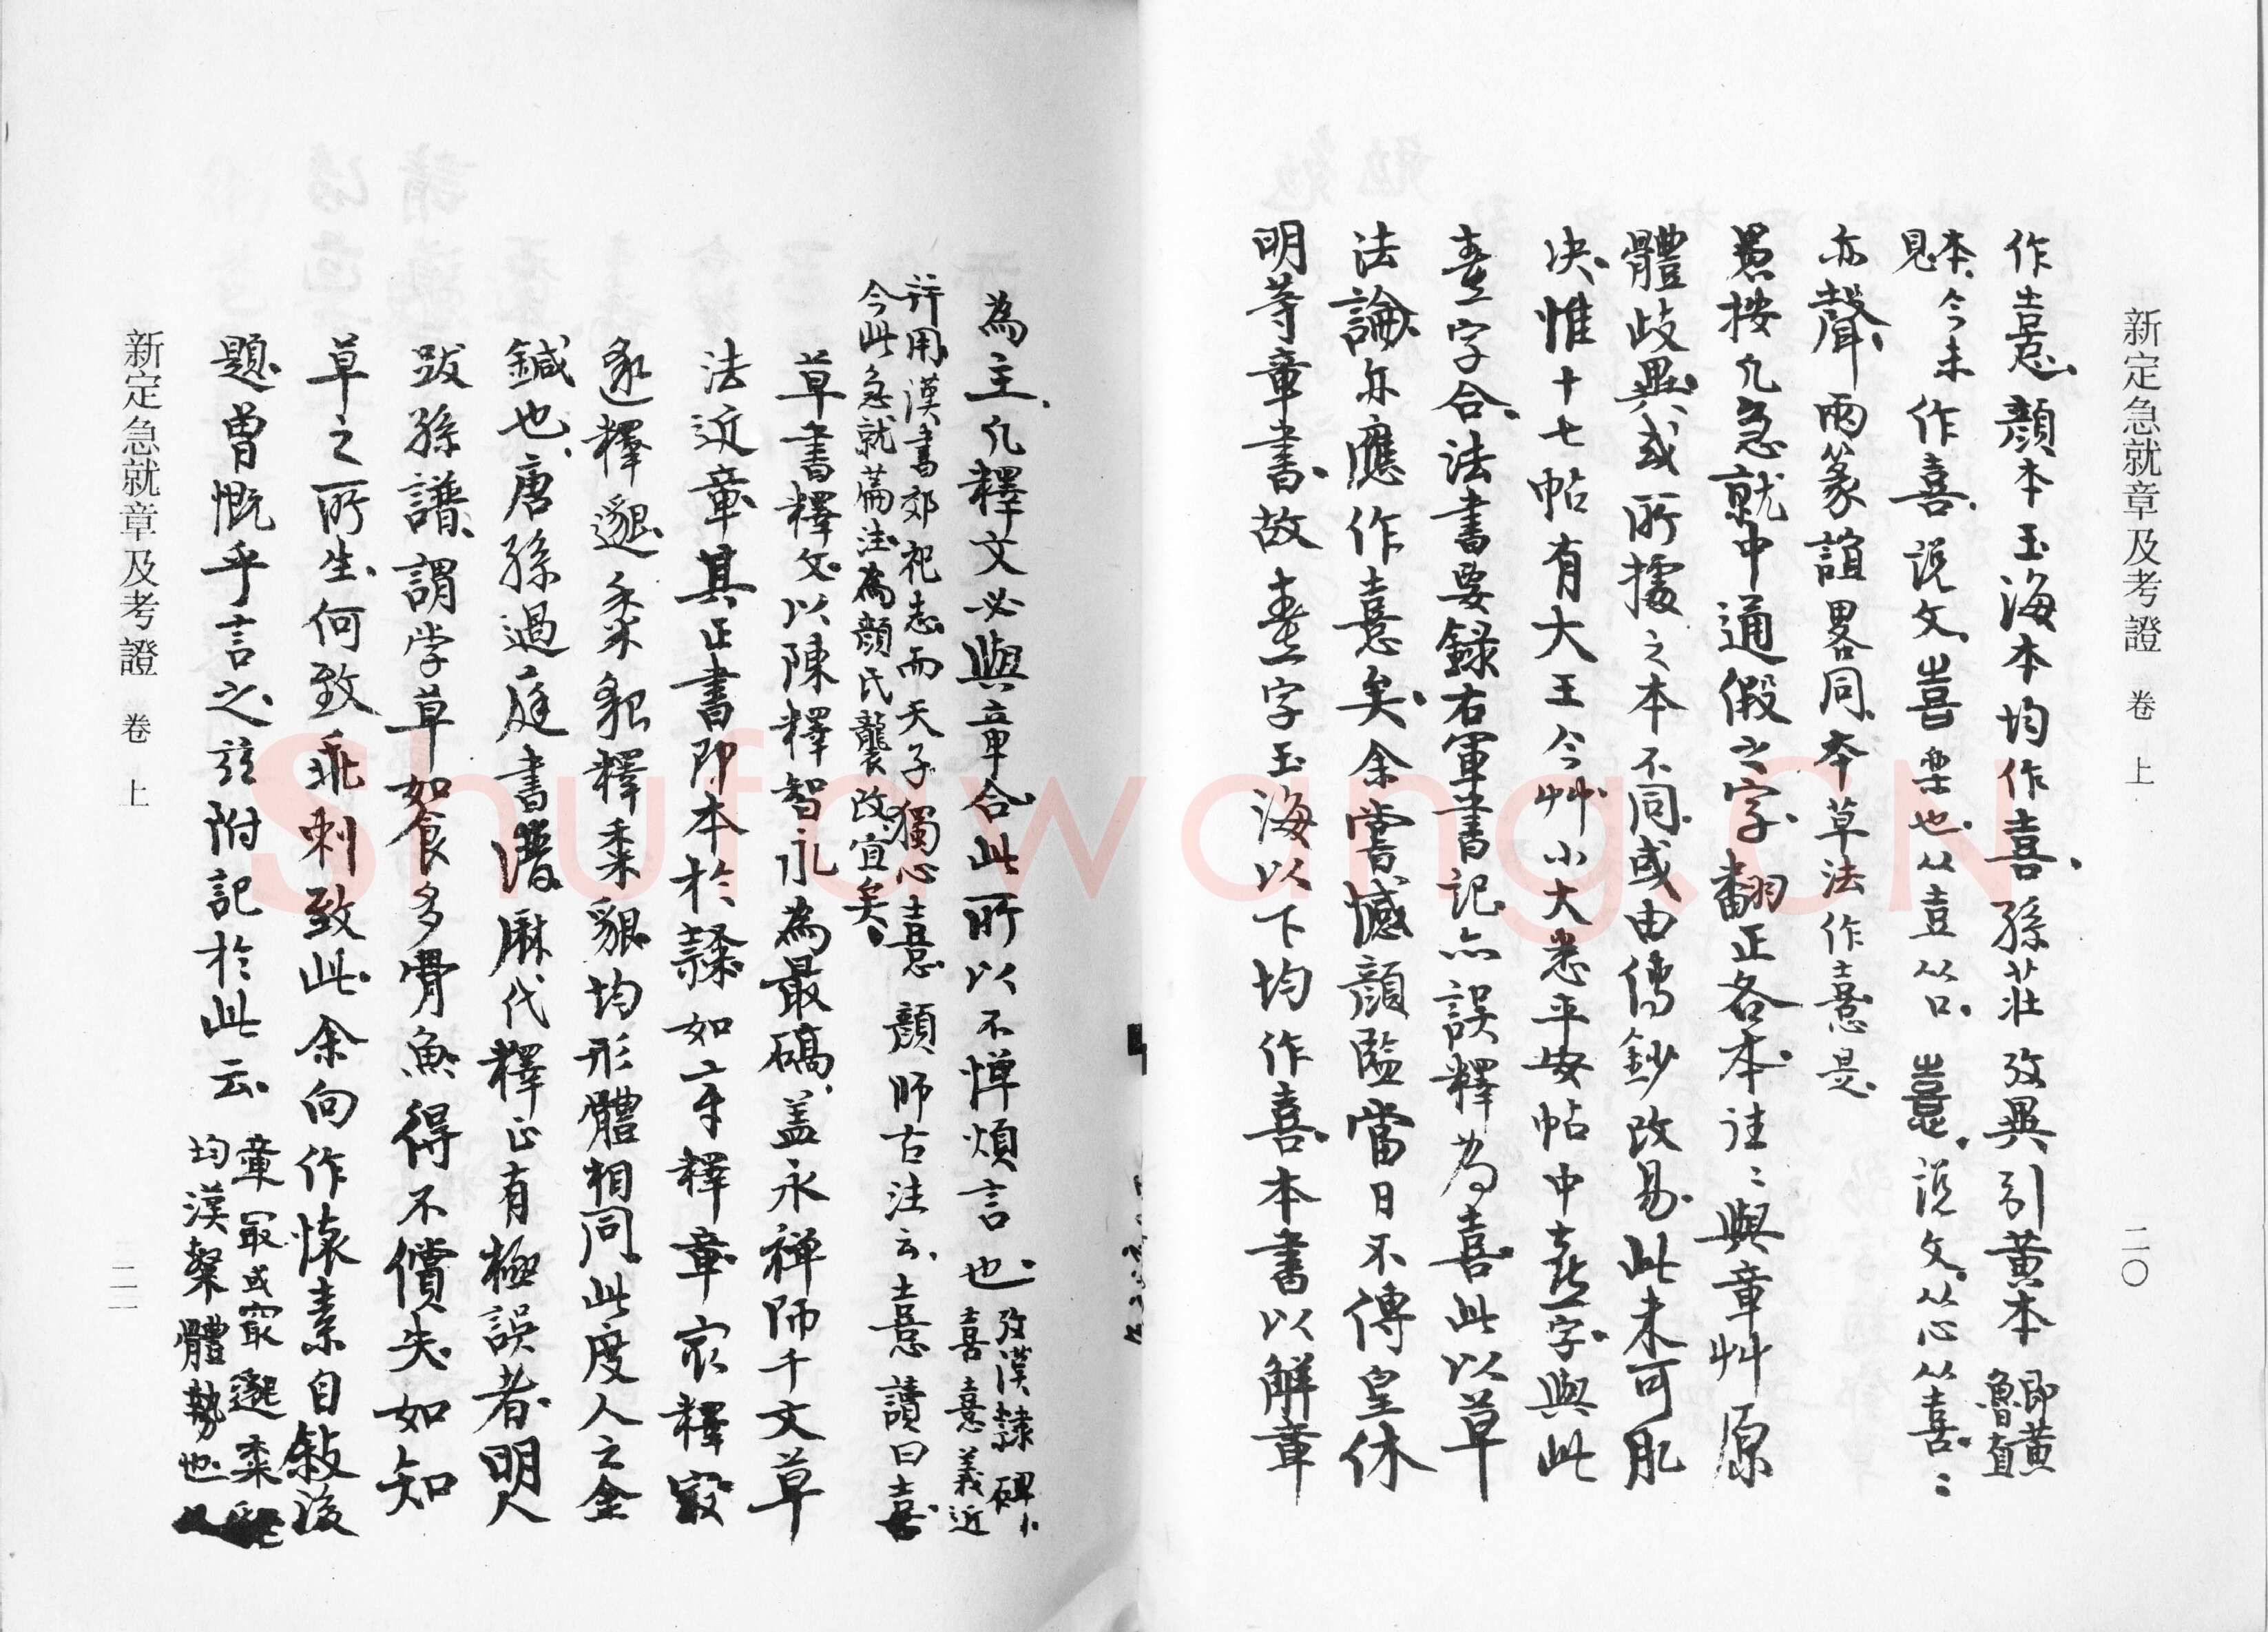 新定急就章及考證 卷上
二〇
作憙顏本玉海本均作喜孫莊攷異引黃本
即黃
魯直
本
見今未作喜說文喜樂也从壴从口憙說文从心从喜〻
亦聲兩篆誼畧同本草法作憙是
愚按凡急就中通假之字翻正各本往〻與章艸原
體歧異或所據之本不同或由傳鈔改易此未可肊
決惟十七帖有大王今艸小大悉平安帖中憙字與此
憙字合法書要錄右軍書記亦誤釋為喜此以草
法論亦應作憙矣余嘗憾顏監當日不傳皇休
明等章書故憙字玉海以下均作喜本書以解章
為主凡釋文必與章合此所以不憚煩言也
攷漢隸碑
喜憙義近
行用漢書郊祀志而天子獨心憙顏師古注云憙讀曰喜
今此急就篇注為顏氏襲改宜矣
草書釋文以陳釋智永為最礭蓋永禪師千文草
法近章其正書即本於隸如釋章家釋
遂釋邈釋黍貌均形體相同此度人之金
鍼也唐孫過庭書譜歷代釋正有極誤者明人
跋孫譜謂学草如食多骨魚得不償失如知
草之所生何致乖刺致此余向作懷素自敍後
題曾慨乎言之玆附記於此云
章最或
均漢槃體勢也
新定急就章及考證 卷上
二一
Shufawang.CN